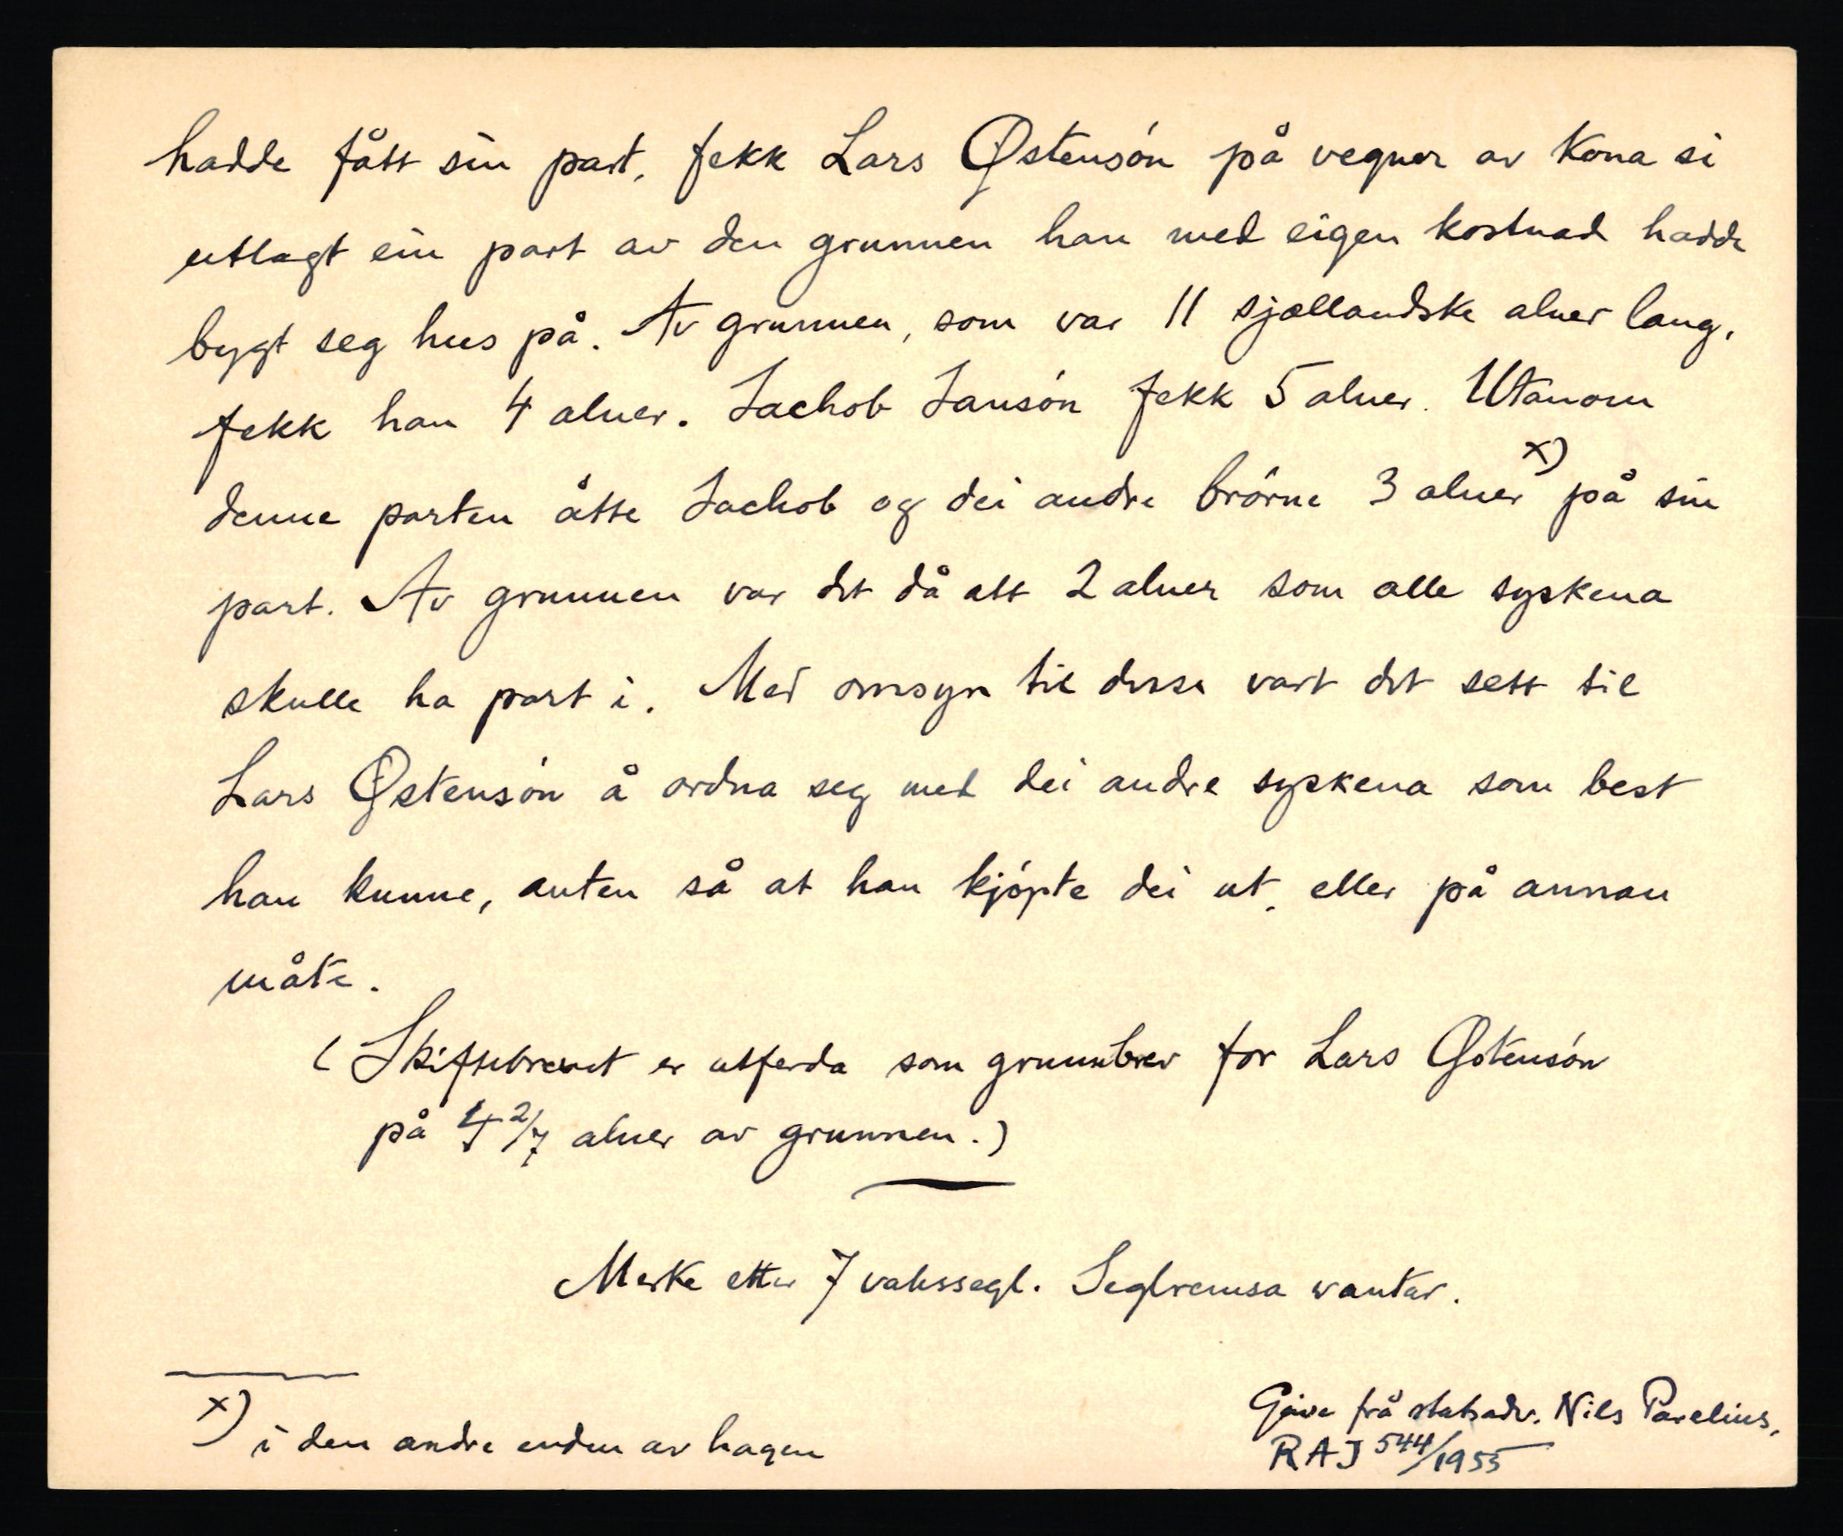 hadde fått sin part, fekk Lars Østensón på vegner av kona si
utlagt ein part av den grunnen han med eigen kostnad hadde
bygt seg hus på. Av grunnen, som var 11 sjællandske alner lang,
fekk han 4 alner. Jachob Jansón fekk 5 alner. Utanom
denne parten åtte Jachob og dei andre brórne 3 alner x) på sin
part. Av grunnen var det då att 2 alner som alle syskena
skulle ha part i. Med omsyn til desse vart det sett til
Lars Østensón å ordna seg med dei andre syskena som best
han kunne, anten så at han kjópte dei ut, eller på annan
måte.
( Skiftebrevet er utferda som grunnbrev for Lars Østensón
på 4 2/7 alner av grunnen.)
Merke etter 7 vakssegl. Seglremsa vantar.
x) i den andre enden av hagen
Gåve frå statsadv. Nils Parelius,
RAJ 544/1955